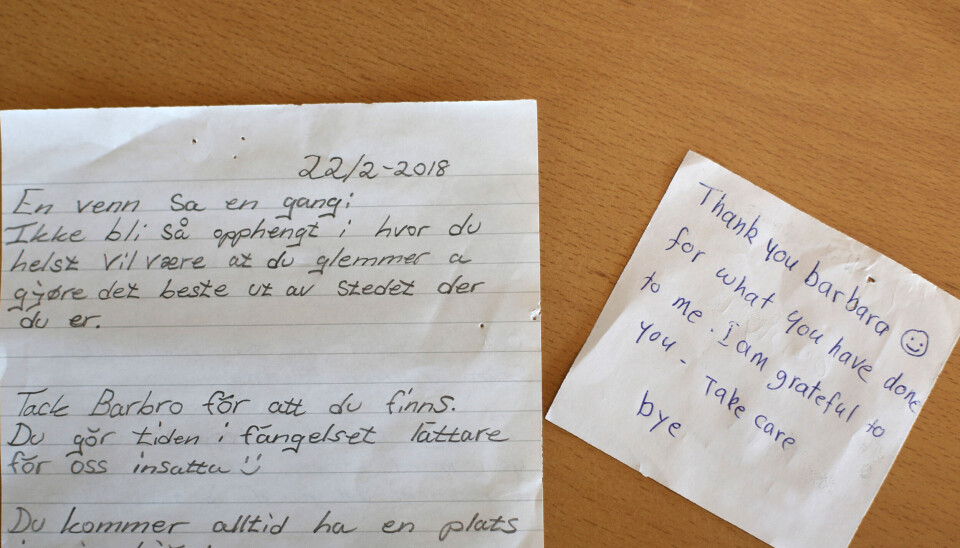 22/2-2018
En venn sa en gang:
Ikke bli så opphengt i hvor du
helst vil være at du glemmer a
gjøre det beste ut av stedet der
du er.
Tack Barbro för att du finns.
Du gör tiden i fängelset lättare
för oss insatta
Du kommer alltid ha en plats
Thank you barbara
for what you have done
to me. I am grateful to
you - Take care
bye